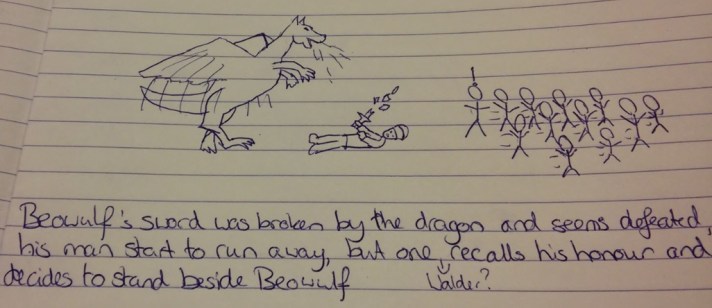 !
Beowulf's sword was broken by the dragon and seems defeated,
his man start to run away, but one, recalls his honour and
decides to stand beside Beowulf
Walder?